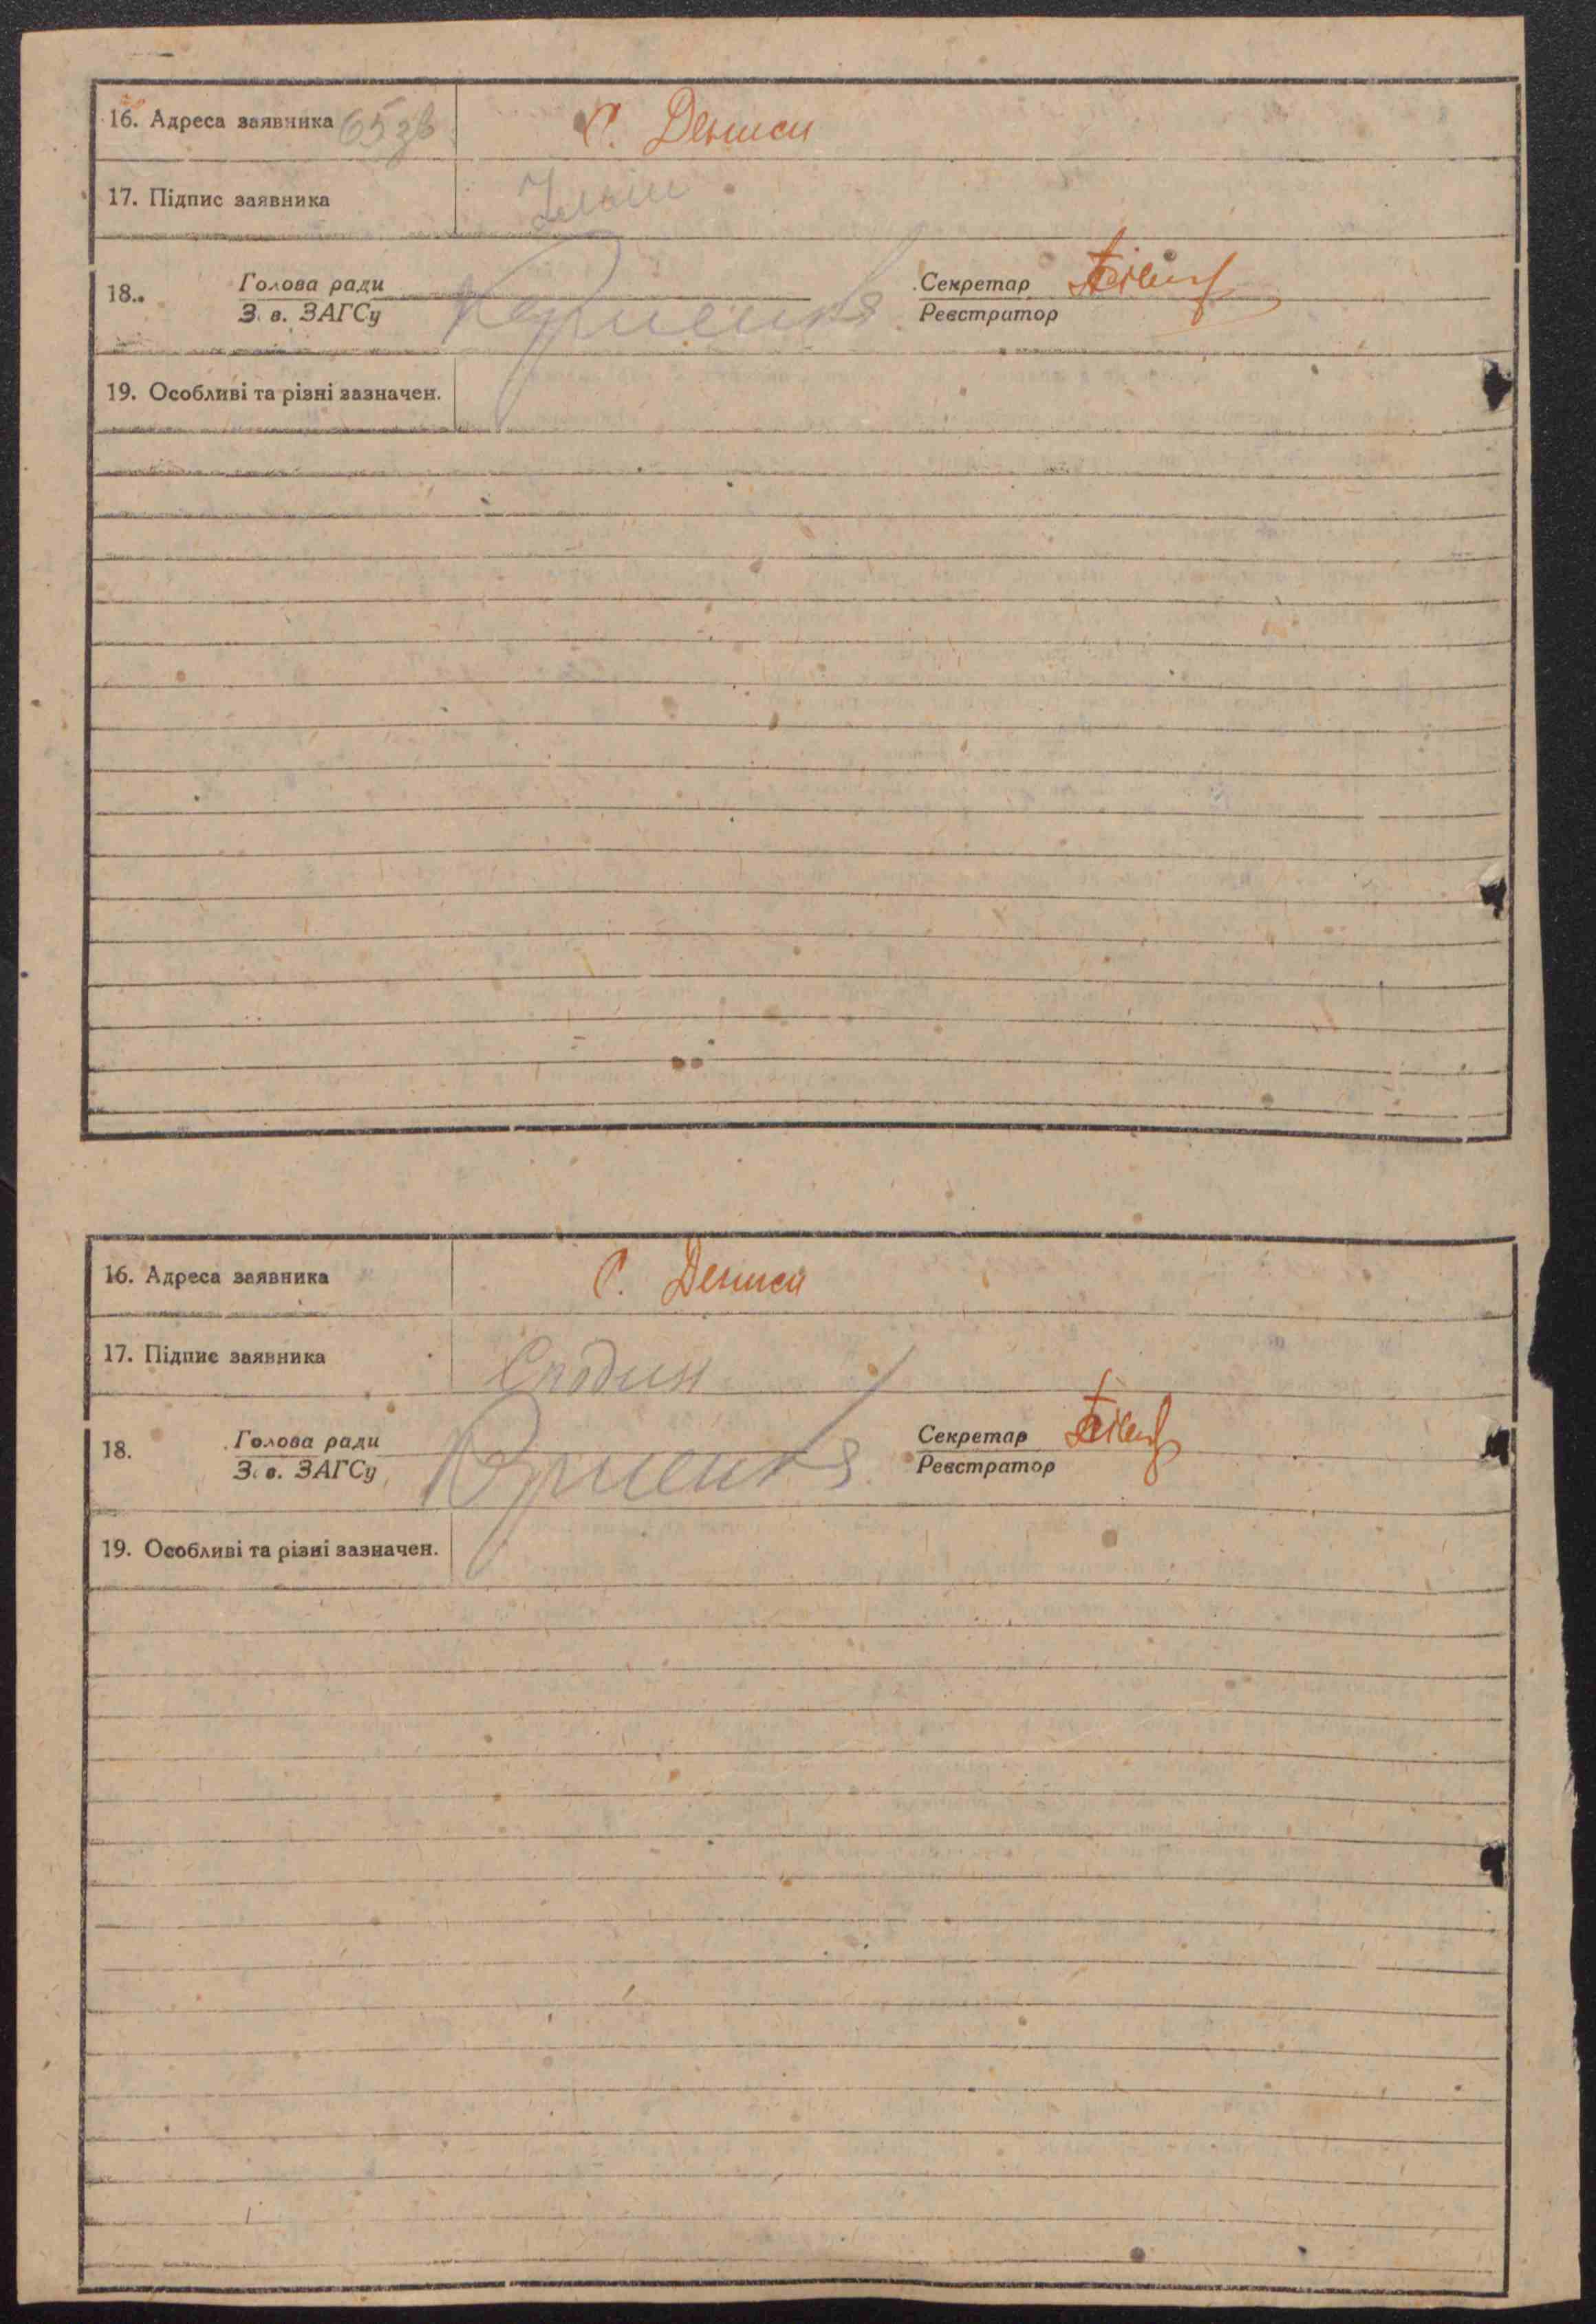 16. Адреса заявника 65 зв
С. Дениси
17. Підпис заявника
18. Голова ради
З. в. ЗАГСу
Секретар
Реєстратор
19. Особливі та різні зазначен.
16. Адреса заявника
С. Дениси
17. Підпис заявника
18. Голова ради
З. в. ЗАГСу
Секретар
Реєстратор
19. Особливі та різні зазначен.